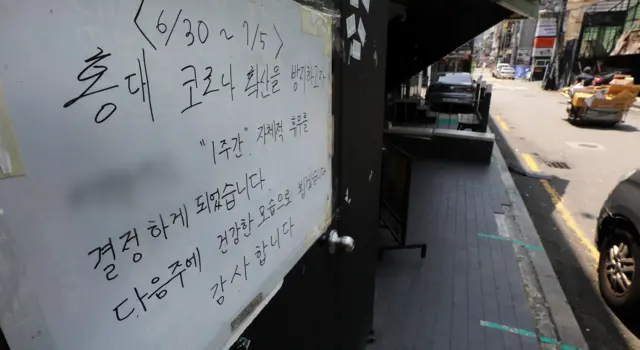 <6/30 ~ 7/5>
홍대 코로나 확산을 방지하고자
"1주간" 자체적 휴무를
결정하게 되었습니다
다음주에 건강한 모습으로 뵙겠습니다
감사합니다